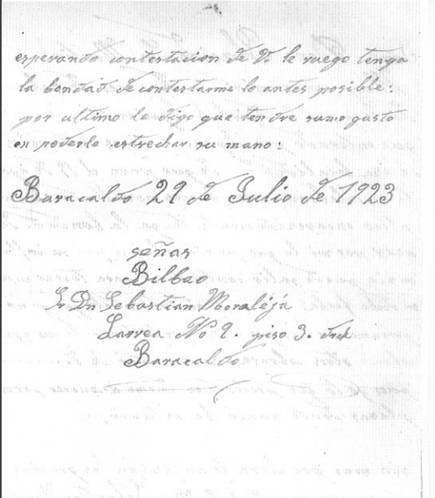 esperando contestacion de V. le ruego tenga
la bondad de contestarme lo antes posible:
por ultimo le digo que tendre sumo gusto
en poderle estrechar su mano:
Baracaldo 29 de Julio de 1923
señas
Bilbao
Sr Dn Sebastian Moraleja
Larrea No 9. piso 3.
Baracaldo